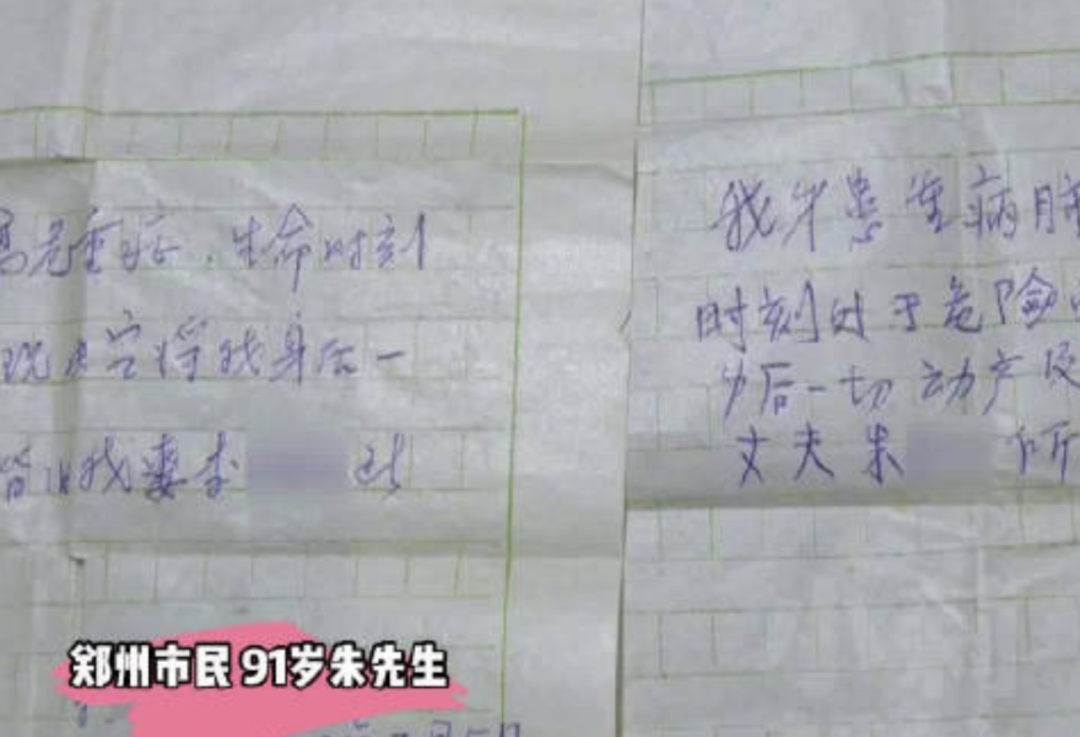 高危重症，生命时刻
现决定将我身后一
皆以我妻李
我身患重病肺
时刻处于危险
身后一切动产及
丈夫朱 所
郑州市民 91岁朱先生